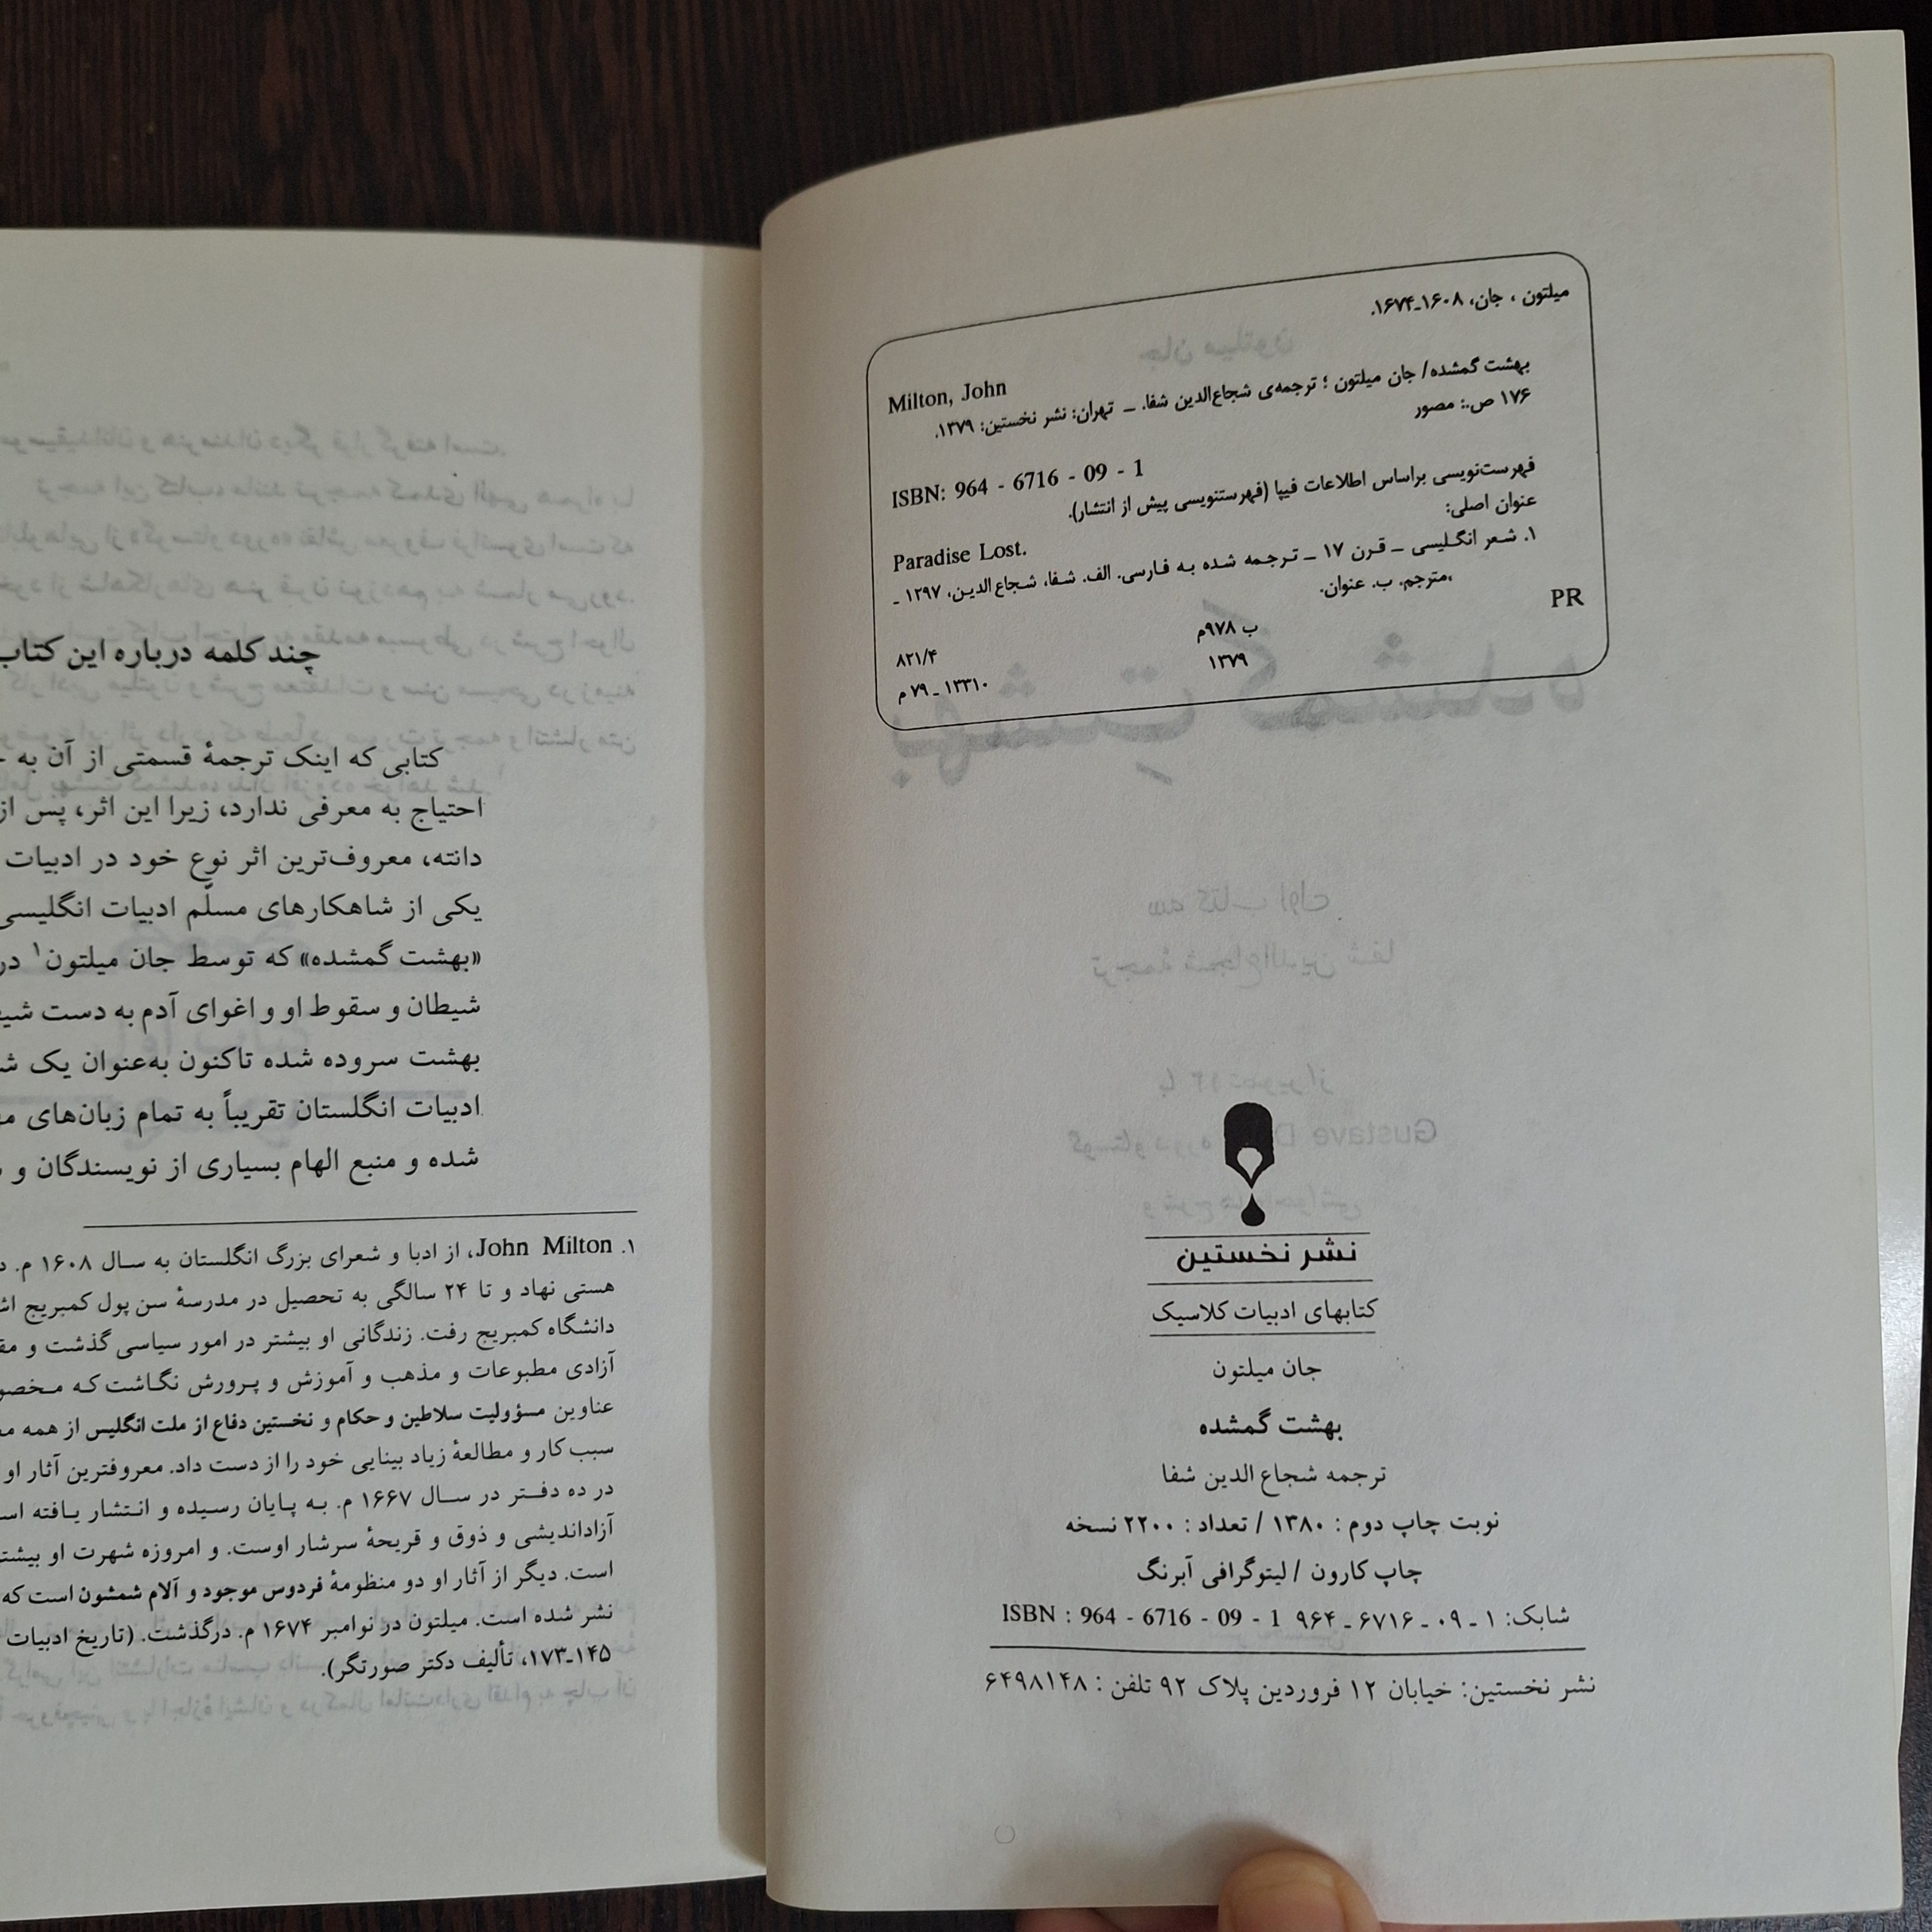 میلتون ، جان، ۱۶۰۸ـ۱۶۷۴.
Milton, John
بهشت گمشده/ جان میلتون ؛ ترجمه‌ی شجاع‌الدین شفا. ـ تهران: نشر نخستین: ۱۳۷۹.
۱۷۶ ص.: مصور
ISBN: 964 - 6716 - 09 - 1
فهرست‌نویسی براساس اطلاعات فیپا (فهرستنویسی پیش از انتشار).
عنوان اصلی:
Paradise Lost.
۱. شعر انگلیسی ـ قرن ۱۷ ـ ترجمه شده به فارسی. الف. شفا، شجاع الدین، ۱۲۹۷ ـ
،مترجم. ب. عنوان.
PR
ب ۹۷۸م
۸۲۱/۴
۱۳۷۹
۱۳۳۱۰ ـ ۷۹ م
نشر نخستین
کتابهای ادبیات کلاسیک
جان میلتون
بهشت گمشده
ترجمه شجاع الدین شفا
نوبت چاپ دوم : ۱۳۸۰ / تعداد : ۲۲۰۰ نسخه
چاپ کارون / لیتوگرافی آبرنگ
شابک: ۱ ـ ۰۹ ـ ۶۷۱۶ ـ ۹۶۴ ISBN : 964 - 6716 - 09 - 1
نشر نخستین: خیابان ۱۲ فروردین پلاک ۹۲ تلفن : ۶۴۹۸۱۴۸
چند کلمه درباره این کتاب
کتابی که اینک ترجمهٔ قسمتی از آن به
احتیاج به معرفی ندارد، زیرا این اثر، پس از
دانته، معروف‌ترین اثر نوع خود در ادبیات
یکی از شاهکارهای مسلّم ادبیات انگلیسی
«بهشت گمشده» که توسط جان میلتون۱ در
شیطان و سقوط او و اغوای آدم به دست
بهشت سروده شده تاکنون به‌عنوان یک
ادبیات انگلستان تقریباً به تمام زبان‌های
شده و منبع الهام بسیاری از نویسندگان و
۱. John Milton، از ادبا و شعرای بزرگ انگلستان به سال ۱۶۰۸ م.
هستی نهاد و تا ۲۴ سالگی به تحصیل در مدرسهٔ سن پول کمبریج
دانشگاه کمبریج رفت. زندگانی او بیشتر در امور سیاسی گذشت و
آزادی مطبوعات و مذهب و آموزش و پرورش نگاشت که
عناوین مسؤولیت سلاطین و حکام و نخستین دفاع از ملت انگلیس از همه
سبب کار و مطالعهٔ زیاد بینایی خود را از دست داد. معروفترین آثار او
در ده دفتر در سال ۱۶۶۷ م. به پایان رسیده و انتشار یافته
آزاداندیشی و ذوق و قریحهٔ سرشار اوست. و امروزه شهرت او
است. دیگر از آثار او دو منظومهٔ فردوس موجود و آلام شمشون است که
نشر شده است. میلتون در نوامبر ۱۶۷۴ م. درگذشت. (تاریخ ادبیات
۱۴۵ـ۱۷۳، تألیف دکتر صورتگر).